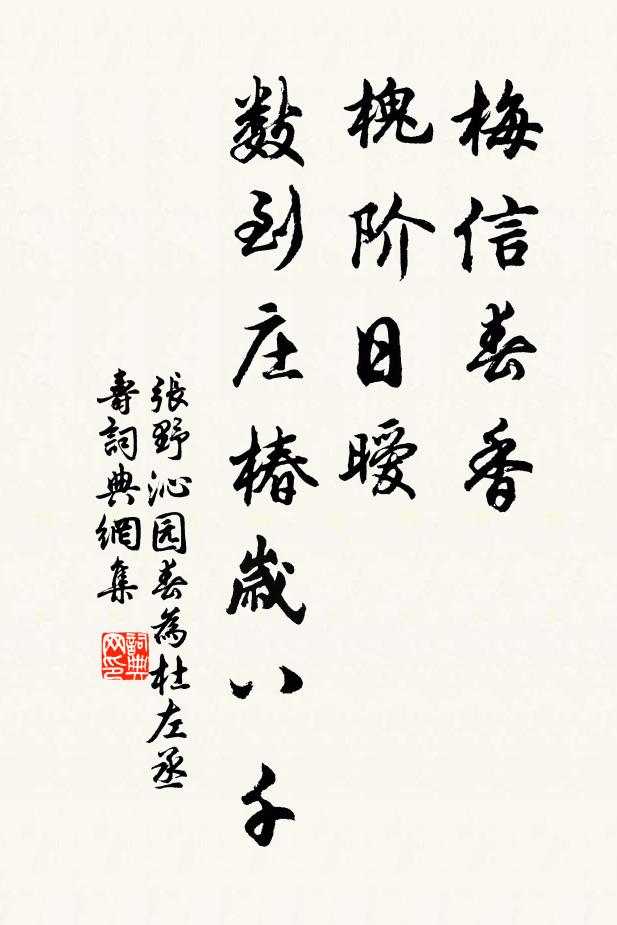 梅信春香
槐阶日暧
数到庄椿歳八千
張野沁园春為杜左丞
壽詞典網集
詞典网印